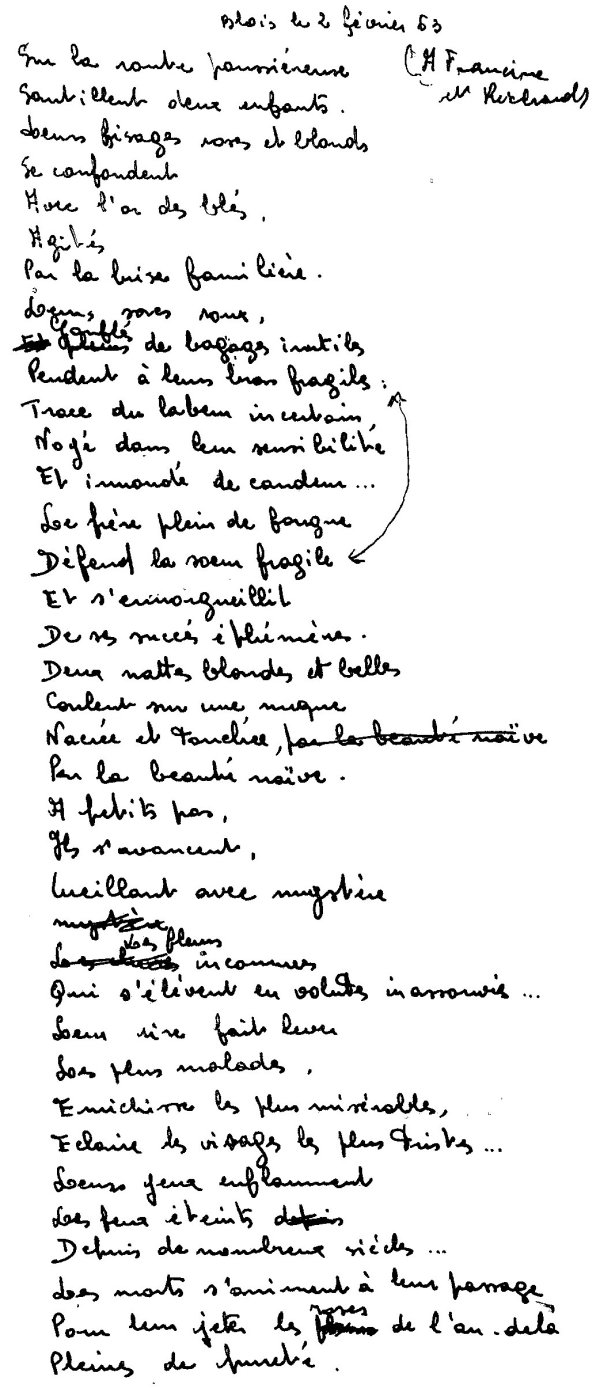 Blois le 2 février 63
(A Francine
et Richard)
Sur la route poussiéreuse
Sautillent deux enfants.
Leurs visages roses et blonds
Se confondent
Avec l'or des blés,
Agités
Par la brise familière.
Leurs sacs roux,
Gonflés
Et pleins de bagages inutiles
Pendent à leurs bras fragiles :
Trace du labeur incertain
Noyé dans leur sensibilité
Et innondé de candeur...
Le frère plein de fougue
Défend la soeur fragile
Et s'ennorgueillit
De ses succés éphémères.
Deux nattes blondes et belles
Coulent sur une nuque
Nacrée et touchée, par la beauté naïve
Par la beauté naïve.
A petits pas,
Ils s'avancent,
Cueillant avec mystère
mystère
Les fleurs
Les inconnues
Qui s'élèvent en volutes inassouvies...
Leur rire fait lever
Les plus malades,
Enrichisse les plus misérables,
Eclaire les visages les plus tristes...
Leurs yeux enflamment
Les feux éteints depuis
Depuis de nombreux siècles...
Les morts s'animent à leur passage
roses
Pour leur jeter les fleurs de l'au-delà
Pleines de pureté.